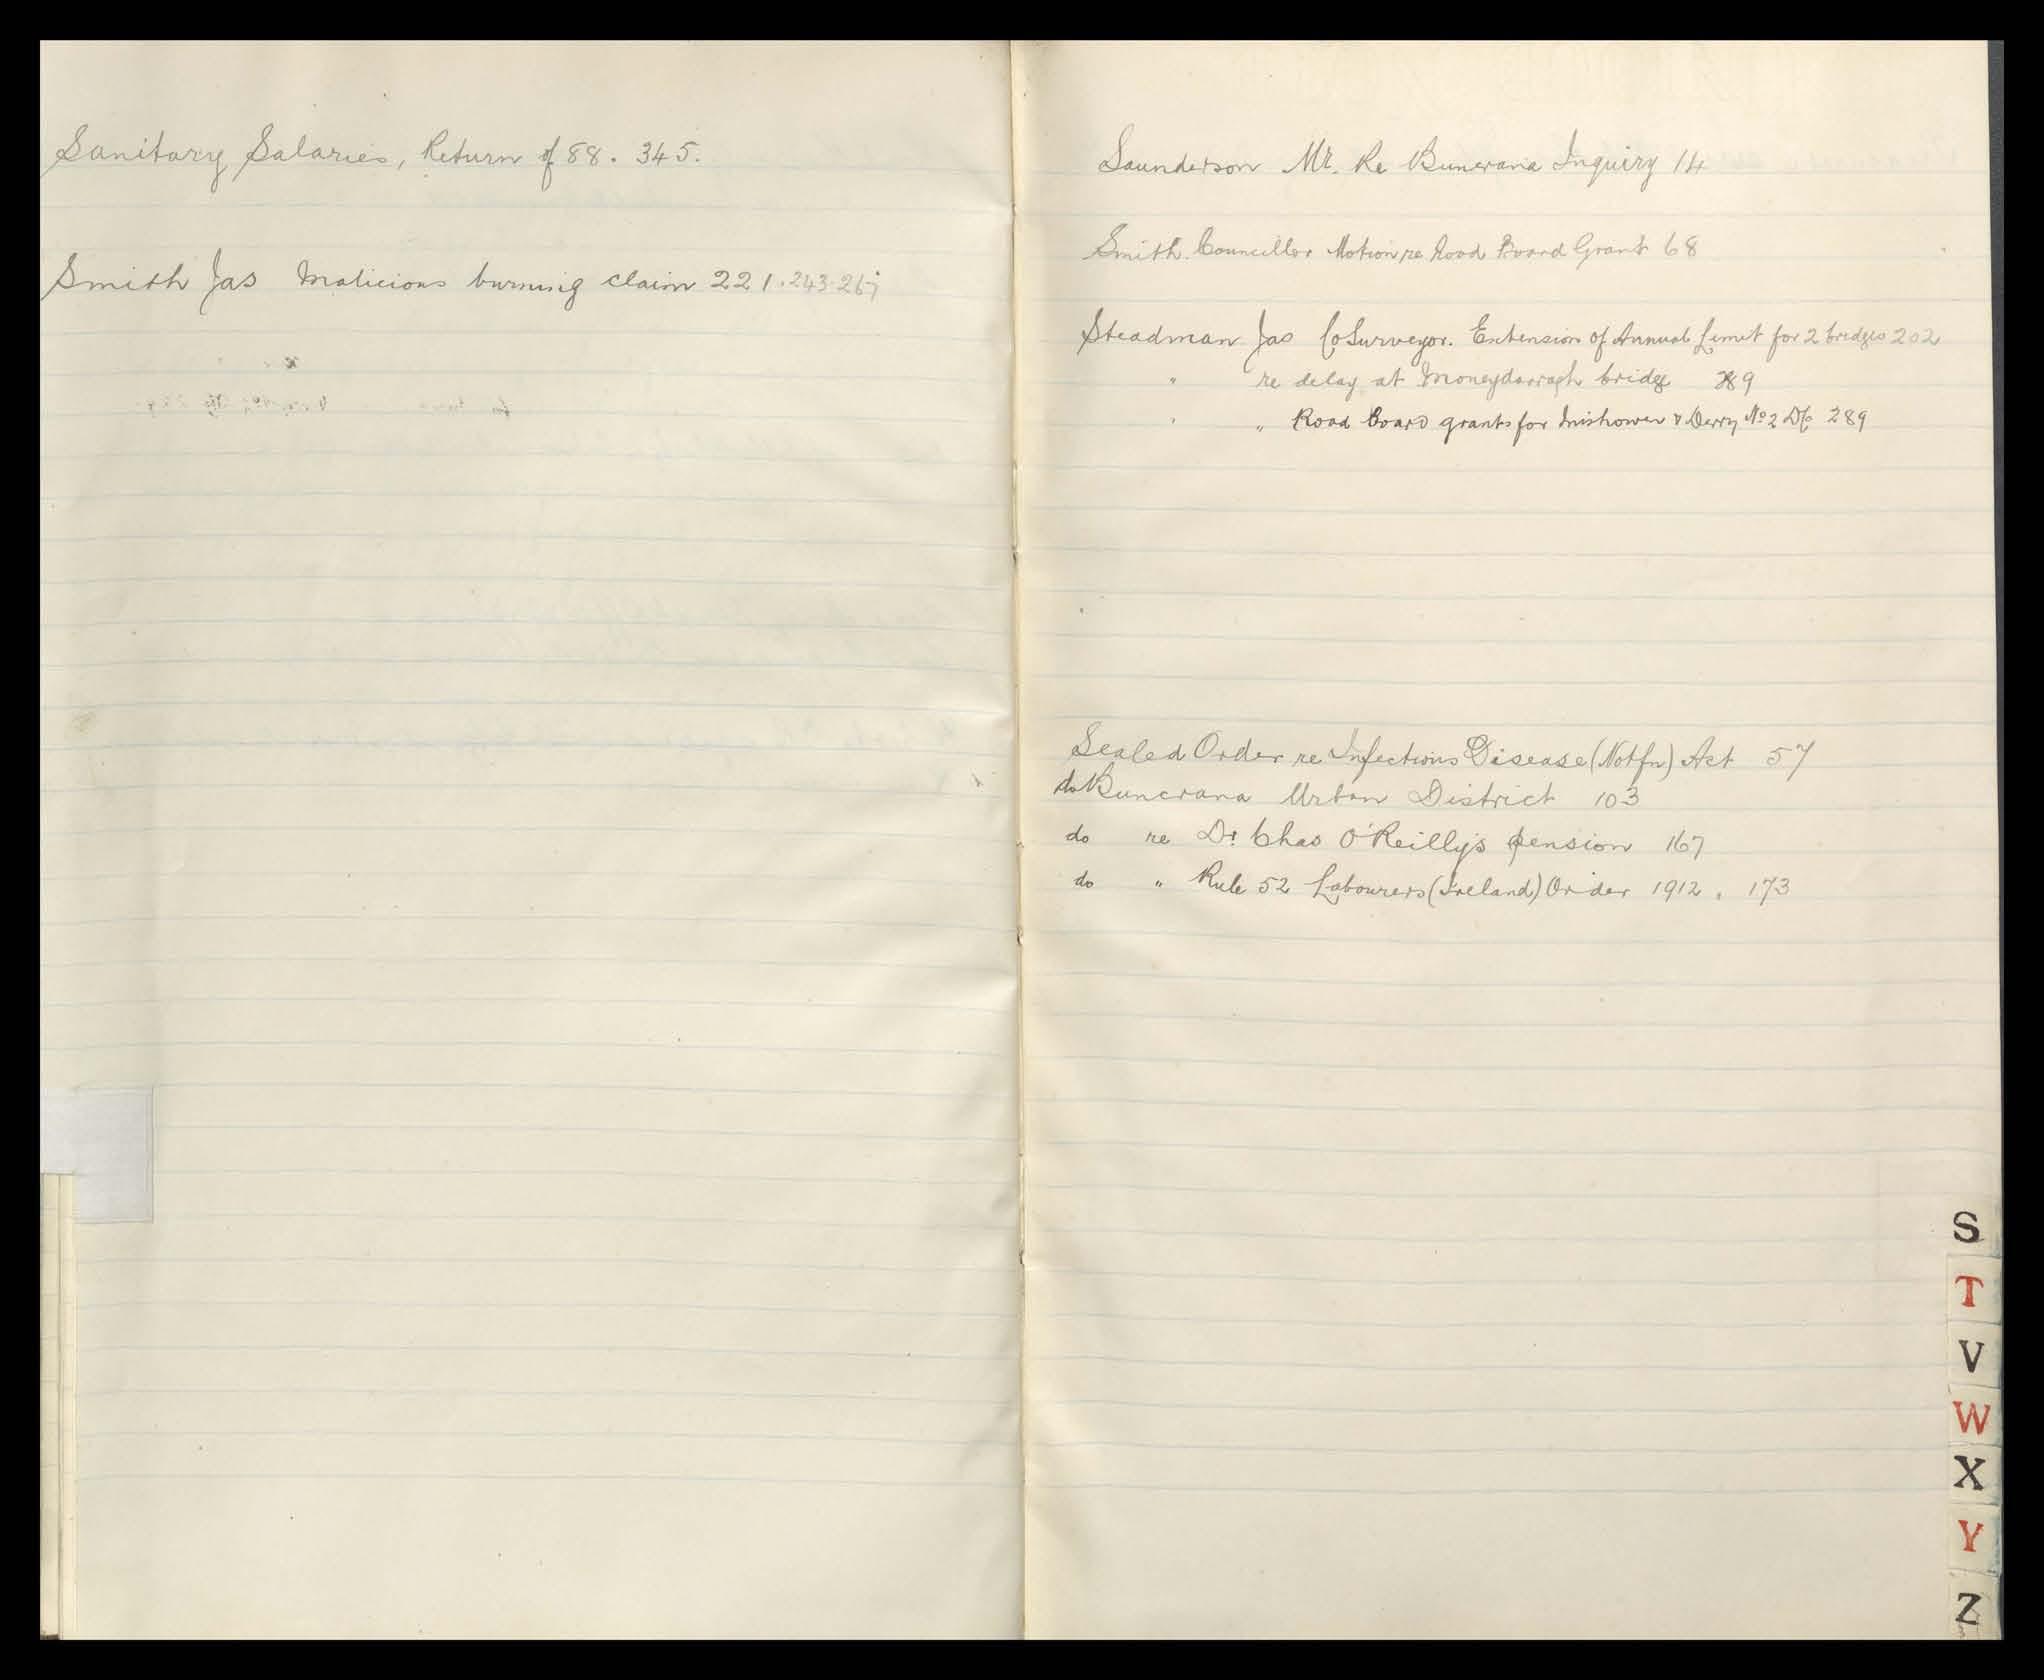 Sanitary Salaries, Return of 88. 345.
Smith Jas Malicious burning claim 221.243.267
Saunderson Mr. Re Buncrana Inquiry 14
Smith Councillor Motion re Road Board Grant 68
Steadman Jas Co Surveyor. Extension of Annual Limit for 2 bridges 202
" re delay at Moneydarragh bridge 289
" " Road Board grants for Inishowen & Derry No 2 DC 289
Sealed Order re Infectious Disease (Notfn) Act 57
do Buncrana Urban District 103
do re Dr. Chas O'Reilly's pension 167
do " Rule 52 Labourers (Ireland) Order 1912. 173
S
T
V
W
X
Y
Z